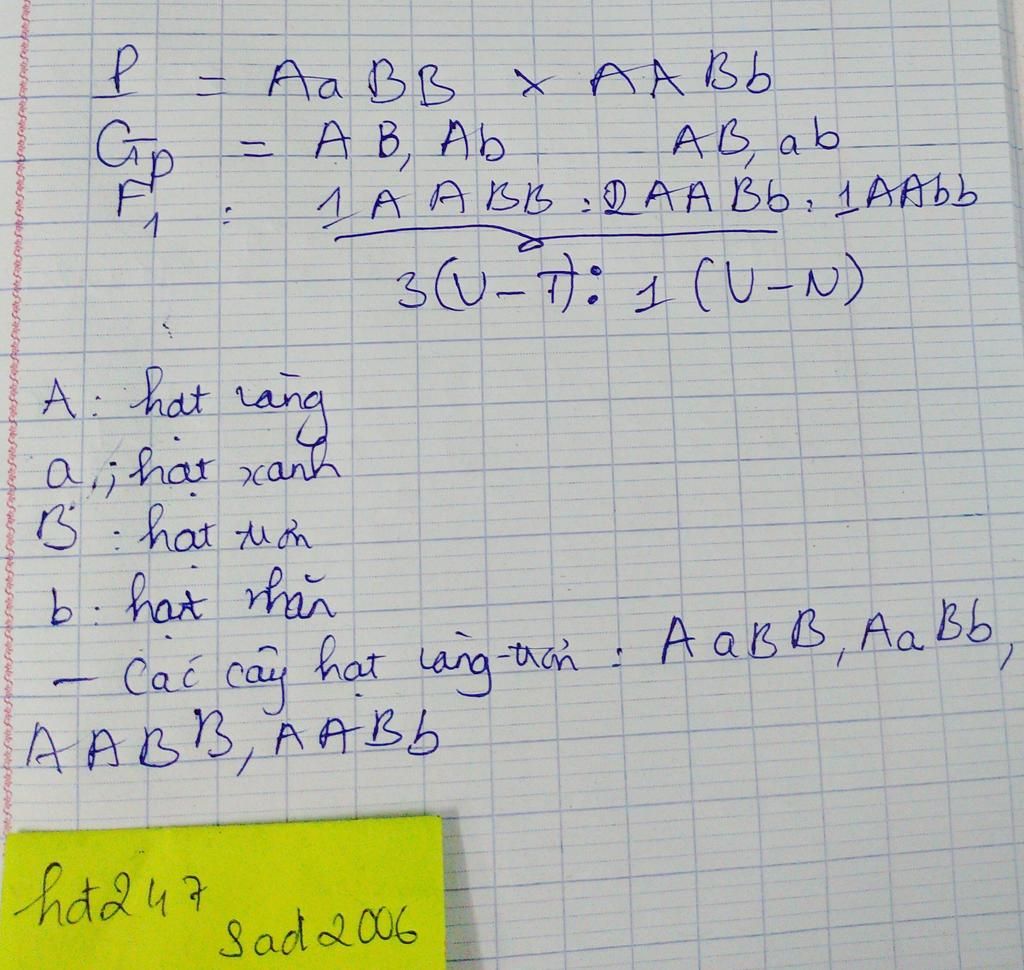 P = AaBB x AABb
Gp = AB, Ab AB, ab
F1 : 1AABB : 2AABb : 1AAbb
3(V-T) : 1 (V-N)
A : hạt vàng
a : hạt xanh
B : hạt trơn
b : hạt nhăn
- Các cây hạt vàng-trơn : AaBB, AaBb,
AABB, AABb
hđ247
sad2006